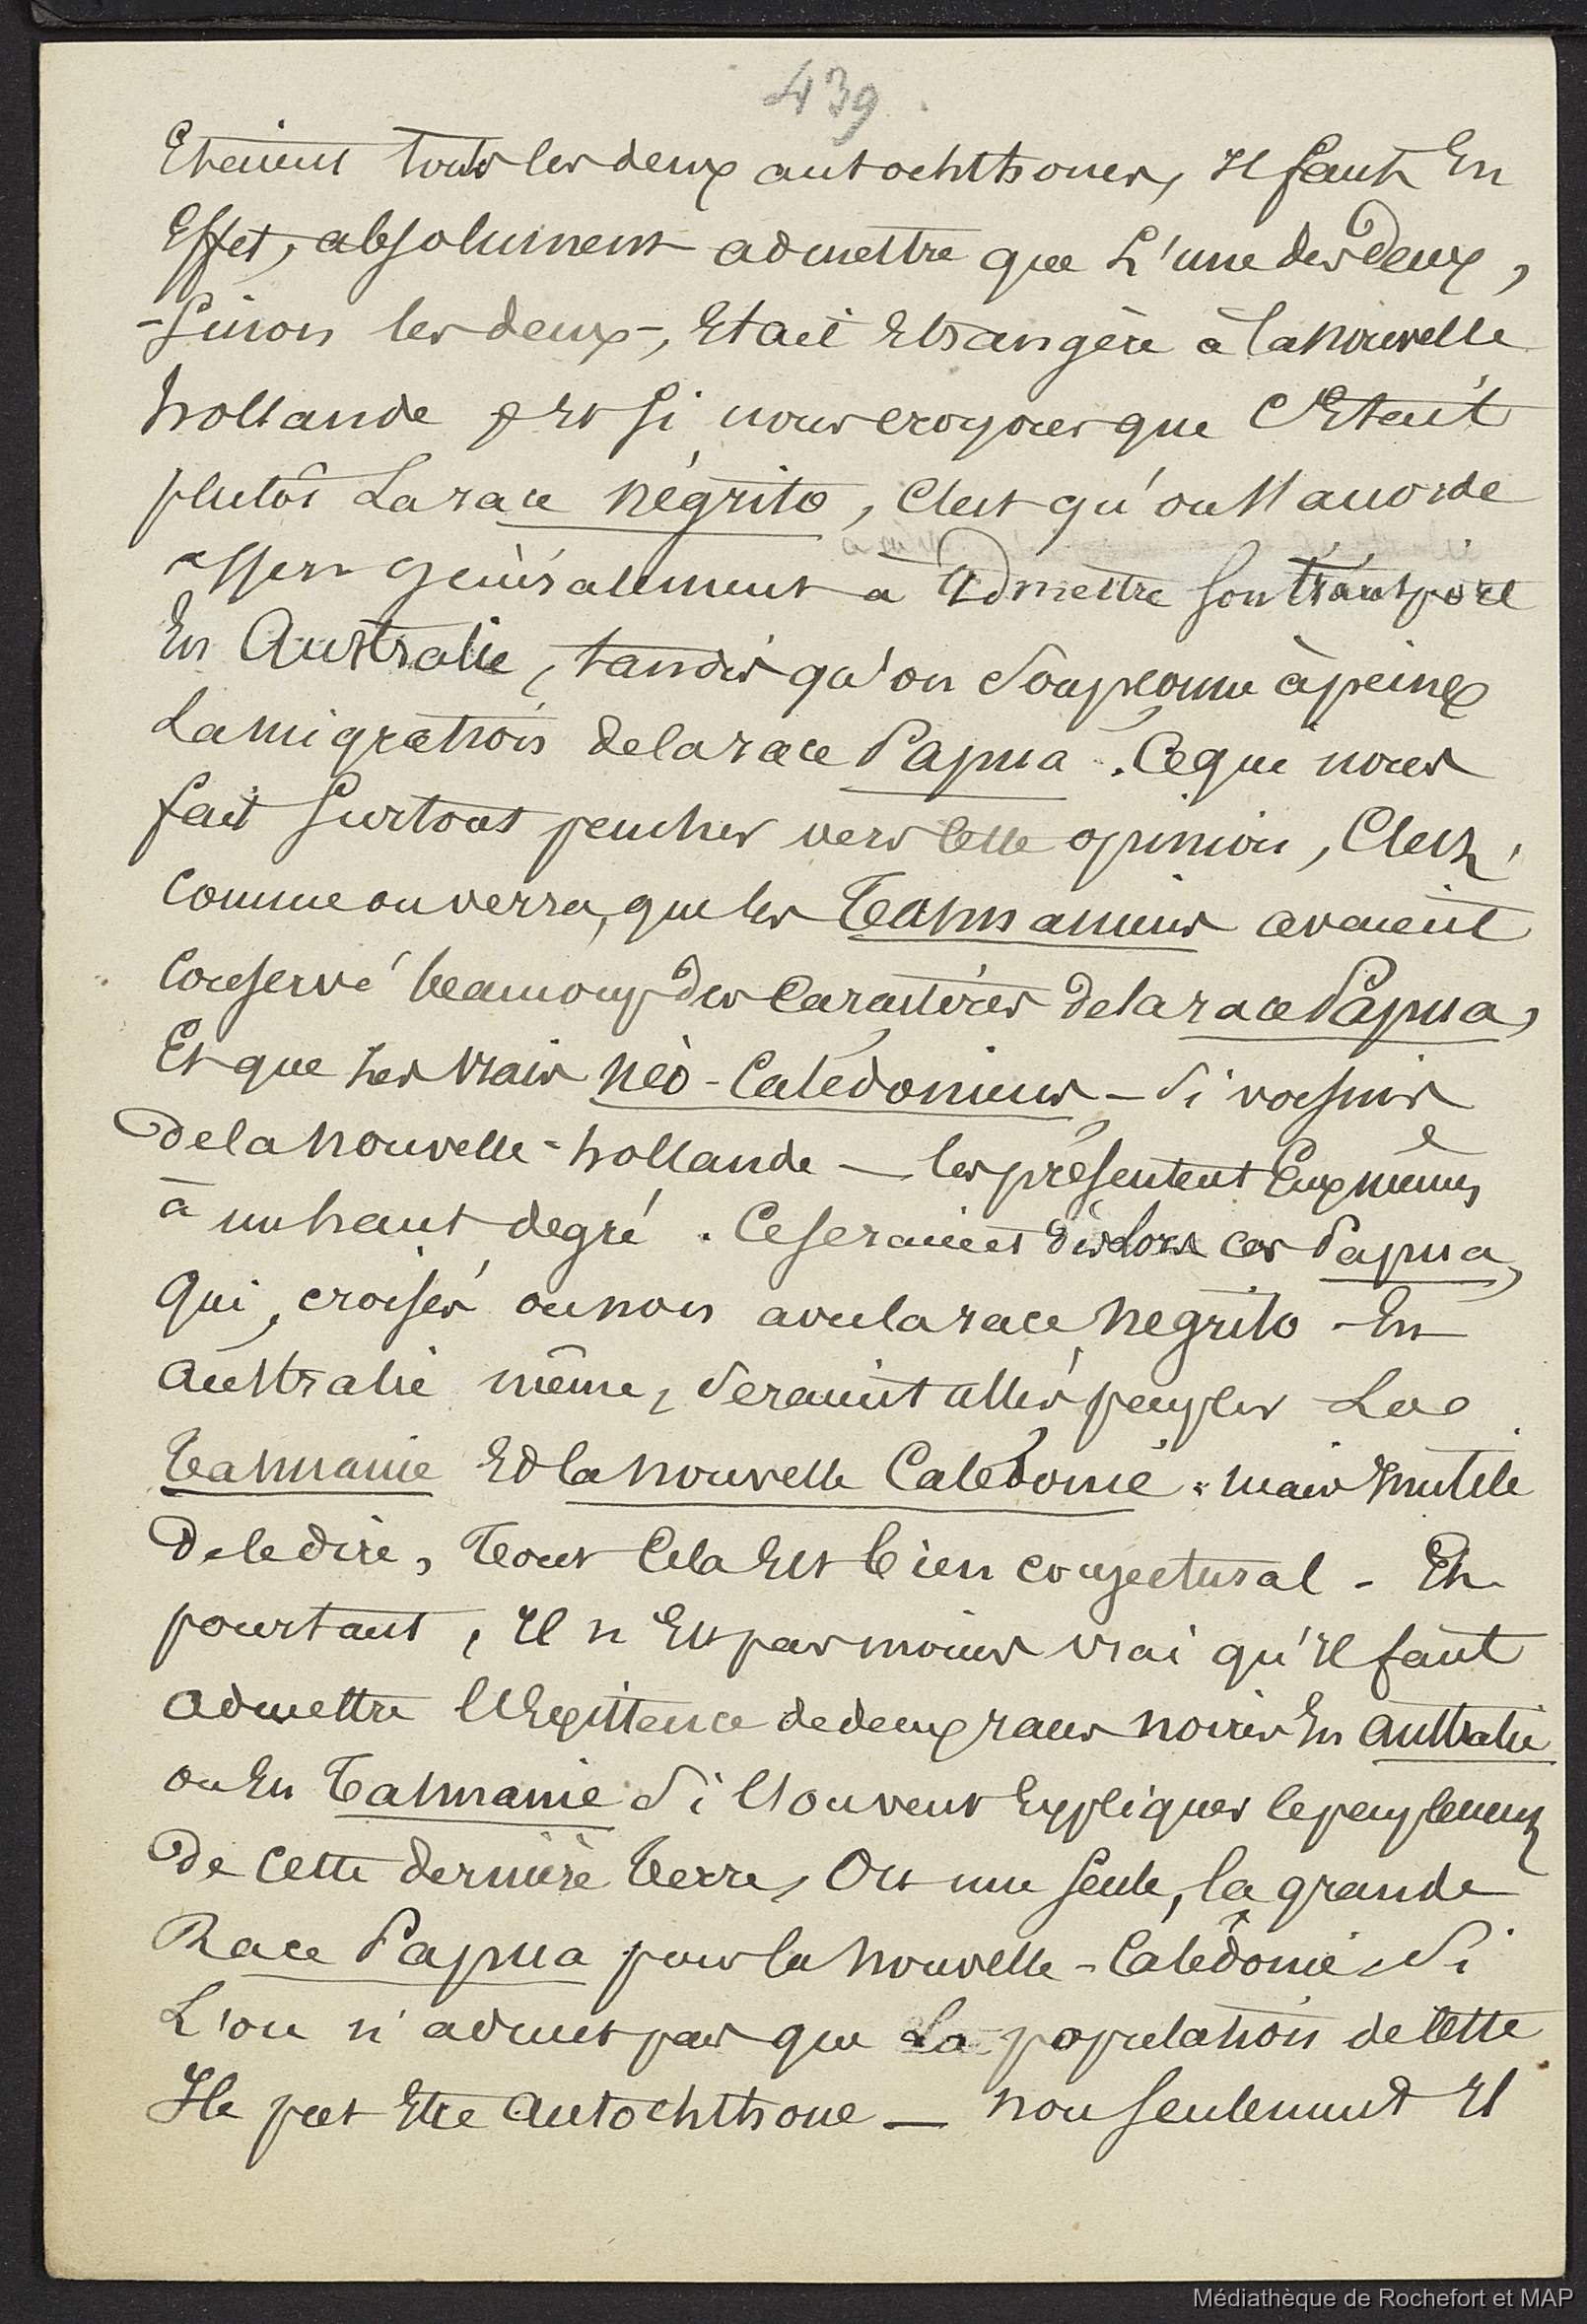 439
Etaient tous les deux autochthones, Il faut En
Effet, absolument admettre que L'une des Deux,
- Sinon les deux -, Etait Etrangère à la nouvelle
hollande, Et si nous croyons que C'Etait
plutôt La race négrito, C'est qu'on s'accorde
assez généralement à Admettre son transport
En Australie, tandis qu'on soupçonne à peine
La migration de la race Papua. Ce qui nous
fait surtout pencher vers cette opinion, C'est,
comme on verra, que les Tasmaniens avaient
conservé beaucoup des caractères de la race Papua,
Et que les vrais néo-Calédoniens - si voisins
de la nouvelle-hollande — les présentent Eux mêmes
à un haut degré. Ce seraient dès lors ces Papua,
Qui, croisés ou non avec la race négrito - En
Australie même, seraient allés peupler La
Tasmanie Et la nouvelle Calédonie. mais Inutile
De le dire, Tout Cela Est bien conjectural - Et
pourtant, Il n'Est pas moins vrai qu'Il faut
admettre l'Existence de deux races noires En Australie
ou En Tasmanie si l'on veut Expliquer le peuplement
De cette dernière Terre, Et une seule, la grande
Race Papua pour la nouvelle-Calédonie, si
L'on n'admet pas que La population de cette
Ile put Etre Autochthone — non seulement Il
Médiathèque de Rochefort et MAP